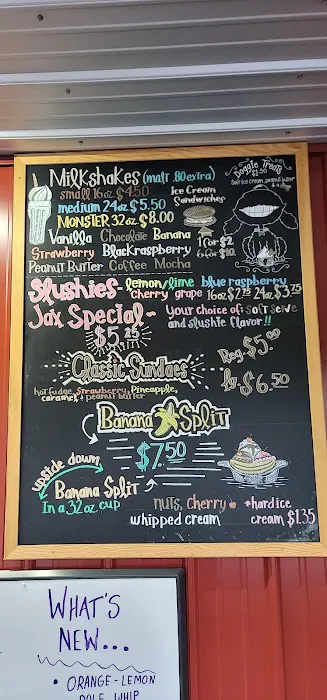 Milkshakes (malt .80 extra)
small 16oz $4.50
medium 24oz $5.50
MONSTER 32oz $8.00
Vanilla Chocolate Banana
Strawberry Black raspberry
Peanut Butter Coffee Mocha
Ice Cream
Sandwiches
1 for $2
6 for $10
Doggie Treats
$1.50
Soft ice cream, peanut butter
& a
Slushies lemon/lime blue raspberry
cherry grape 16oz $2.75 24oz $3.75
Jax Special~
$5.25
Your choice of: soft serve
and slushie flavor!!
Classic Sundaes
Reg. $5.00
lg. $6.50
hot fudge, Strawberry, Pineapple,
caramel, & peanut butter
Banana Split
$7.50
upside down
Banana Split
In a 32oz cup
nuts, cherry
whipped cream
*hard ice
cream $1.35
WHAT'S
NEW...
• ORANGE-LEMON
DOLE WHIP